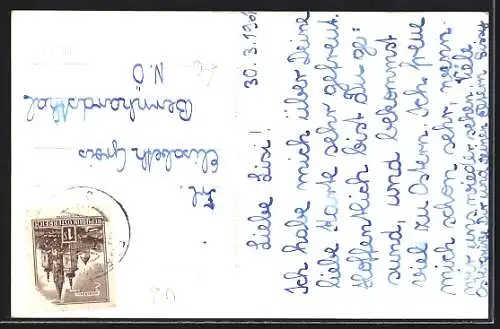 30. 3. 1961
Liebe Lisi!
Ich habe mich über Deine
liebe Karte sehr gefreut.
Hoffentlich bist Du ge-
sund, und bekommst
viel zu Ostern. Ich freue
mich schon sehr, wenn
wir uns wieder sehen. Viele
Ostergrüße Dir und Deinen Eltern Sissy
Frl.
Elisabeth Grois
Bernhardsthal
N.Ö
REPUBLIK ÖSTERREICH